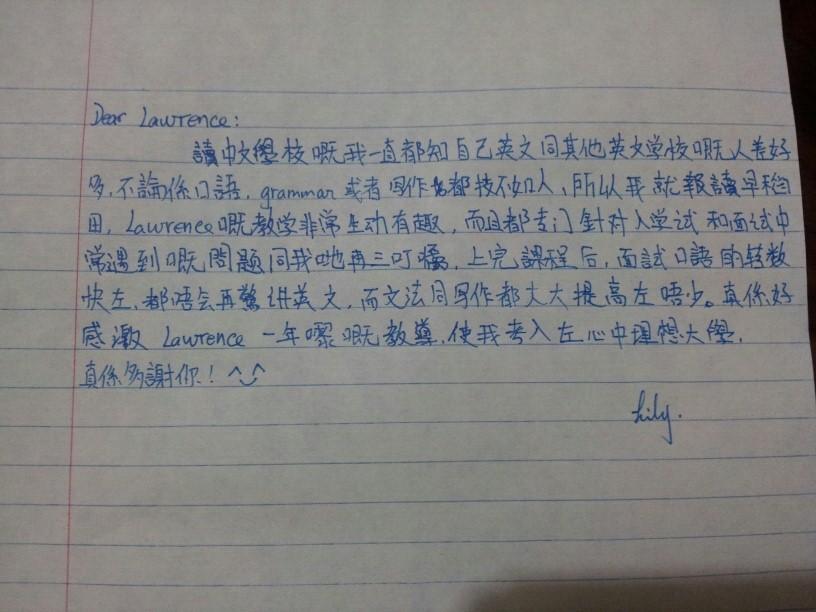 Dear Lawrence:
讀中文學校嘅我一直都知自己英文同其他英文学校嘅人差好
多,不論係口語,grammar或者写作都技不如人,所以我就報讀早稻
田,Lawrence嘅教学非常生动有趣,而且都专门針对入学试和面试中
常遇到嘅問題同我哋再三叮囑,上完課程后,面試口語的转数
快左,都唔会再驚讲英文,而文法同写作都大大提高左唔少。真係好
感激 Lawrence 一年嚟嘅教導,使我考入左心中理想大學,
真係多謝你!^◡^
Lily.